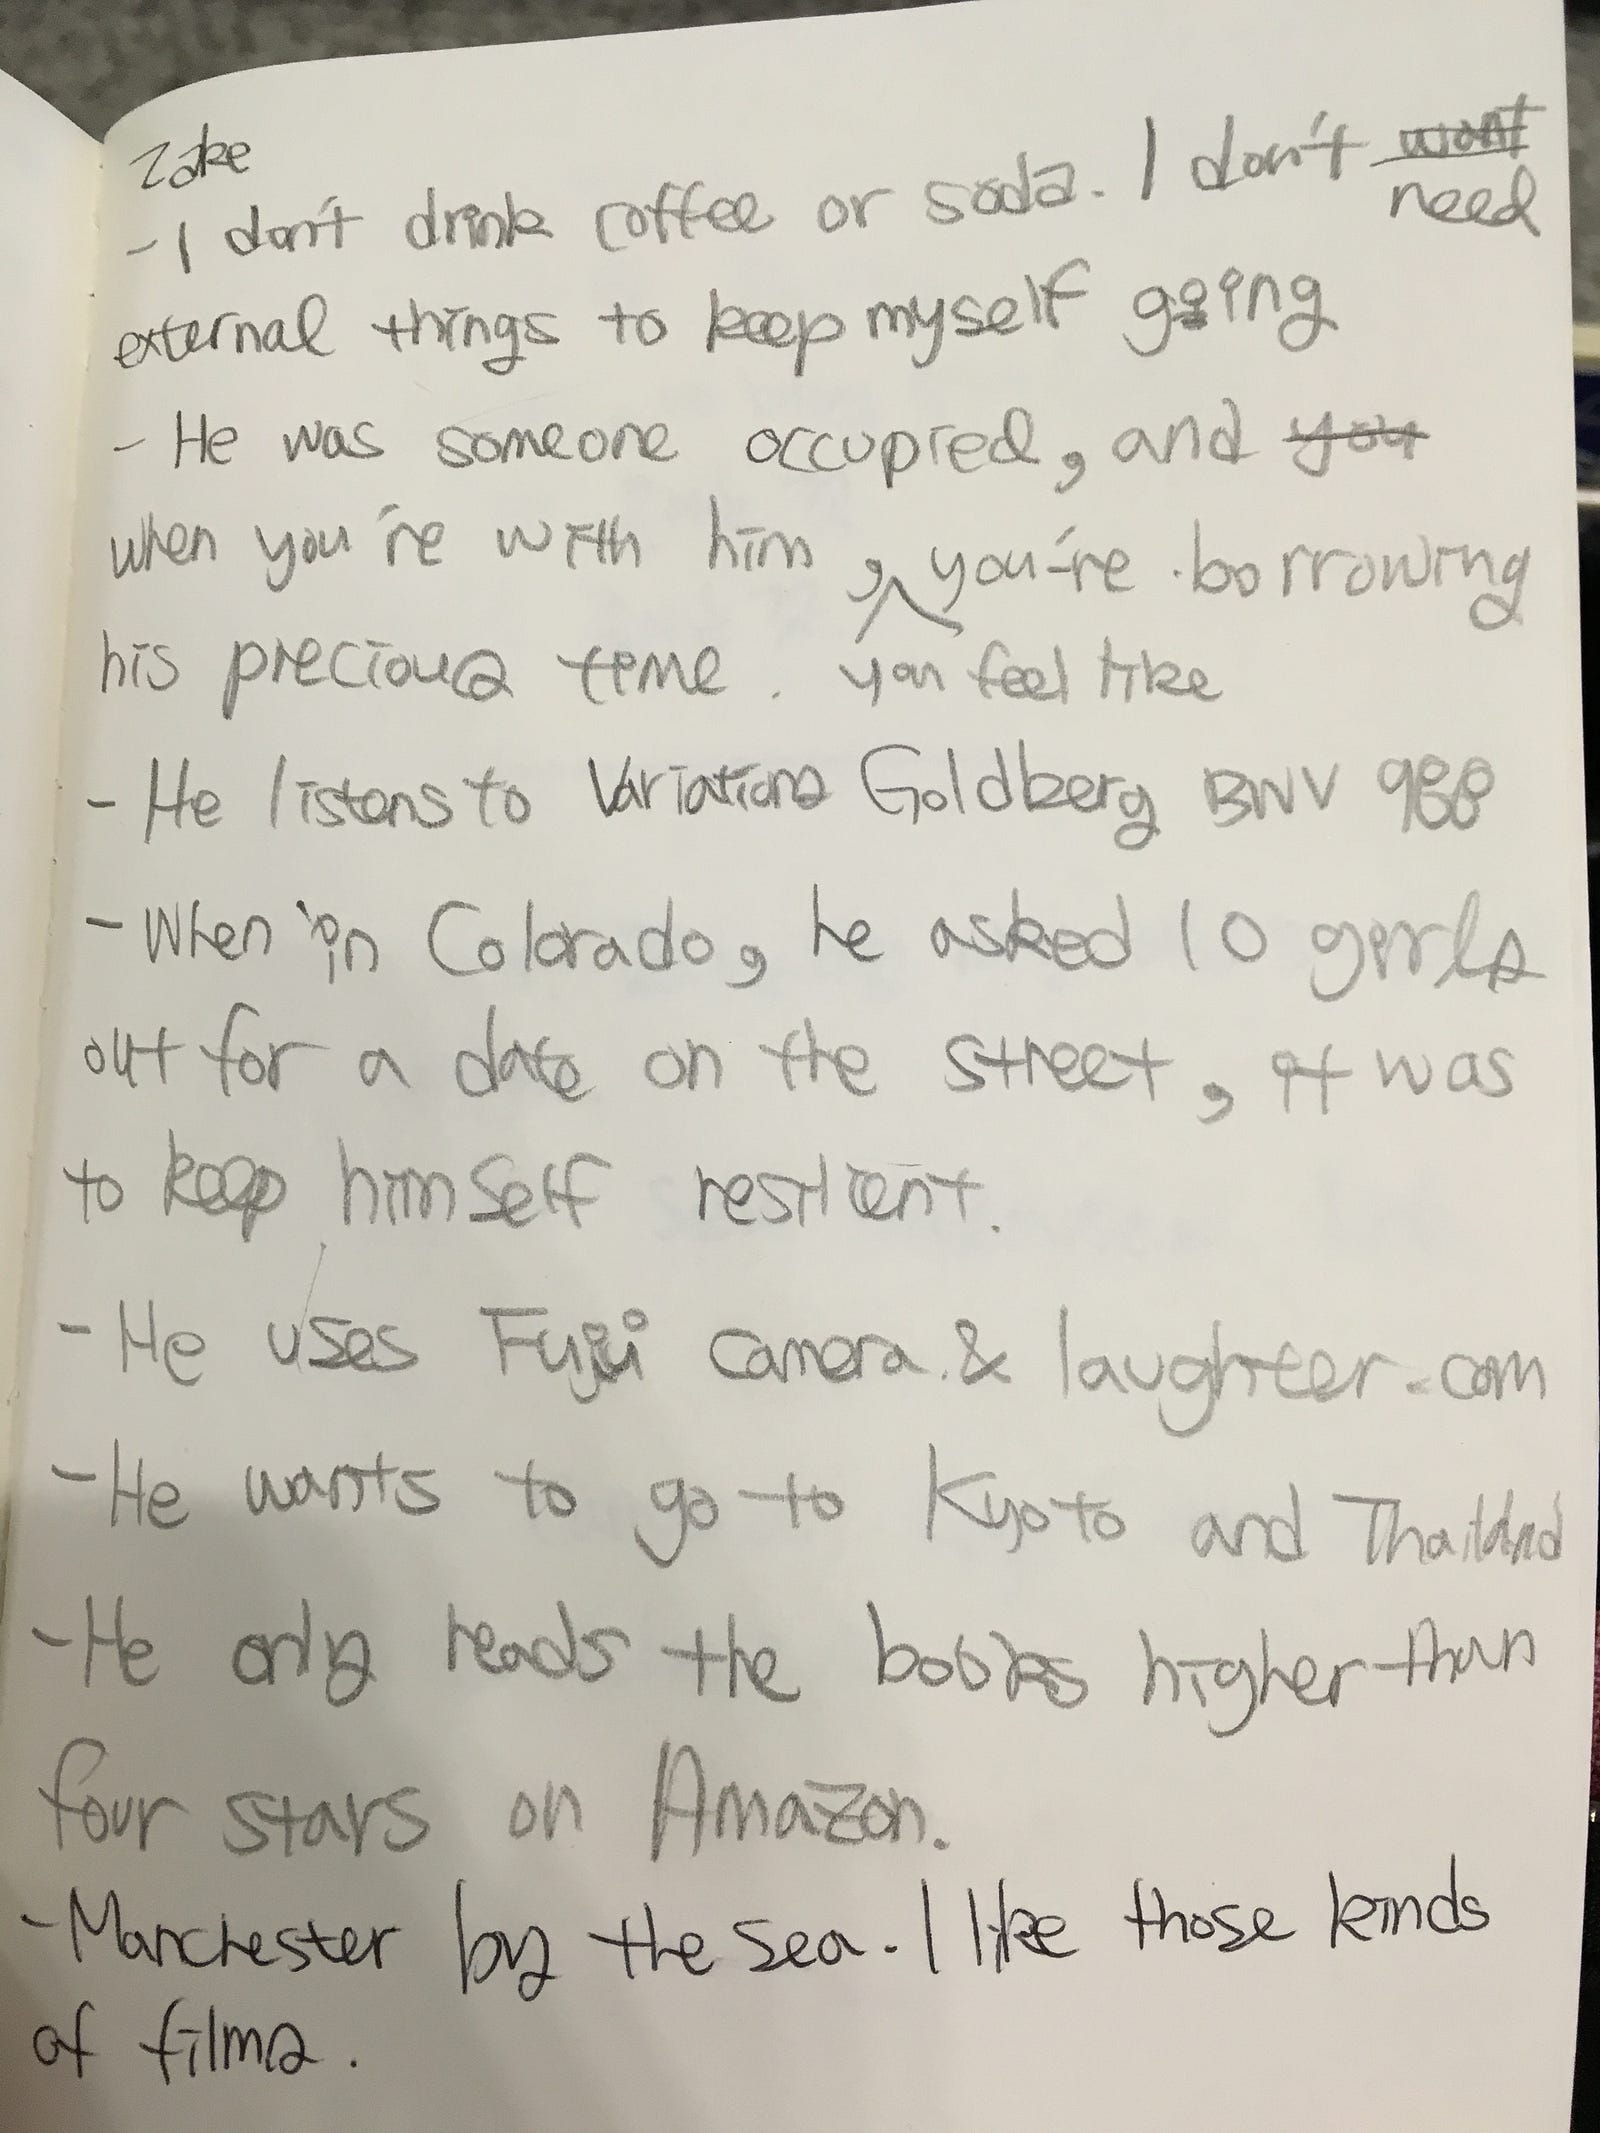 Zake
- I don't drink coffee or soda. I don't want
need
external things to keep myself going
- He was someone occupied, and you
when you're with him, you're borrowing
his precious time. you feel like
- He listens to Variations Goldberg BWV 988
- When in Colorado, he asked 10 girls
out for a date on the street, it was
to keep himself resilient.
- He uses Fuji camera & laughteer.com
- He wants to go to Kyoto and Thailand
- He only reads the books higher than
four stars on Amazon.
- Manchester by the sea. I like those kinds
of films.